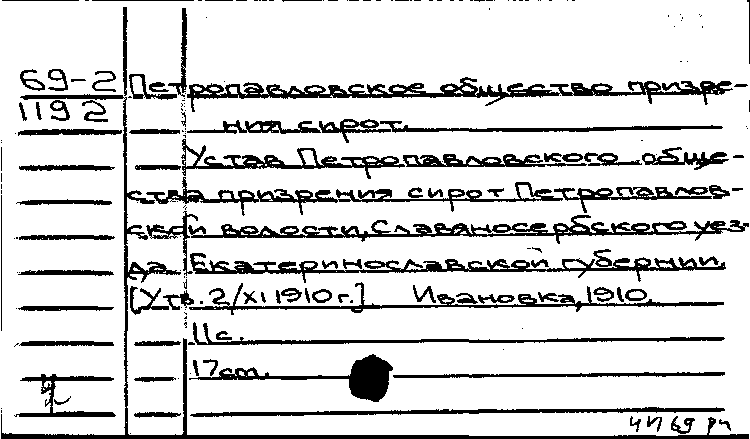 69-2 Петропавловское общество призре-
1192
ния сирот.
Устав Петропавловского обще-
ства призрения сирот Петропавлов-
ской волости, Славяносербского уез-
да Екатеринославской губернии.
[Утв. 2/XI 1910 г.]. Ивановка, 1910.
11 с.
17 см.